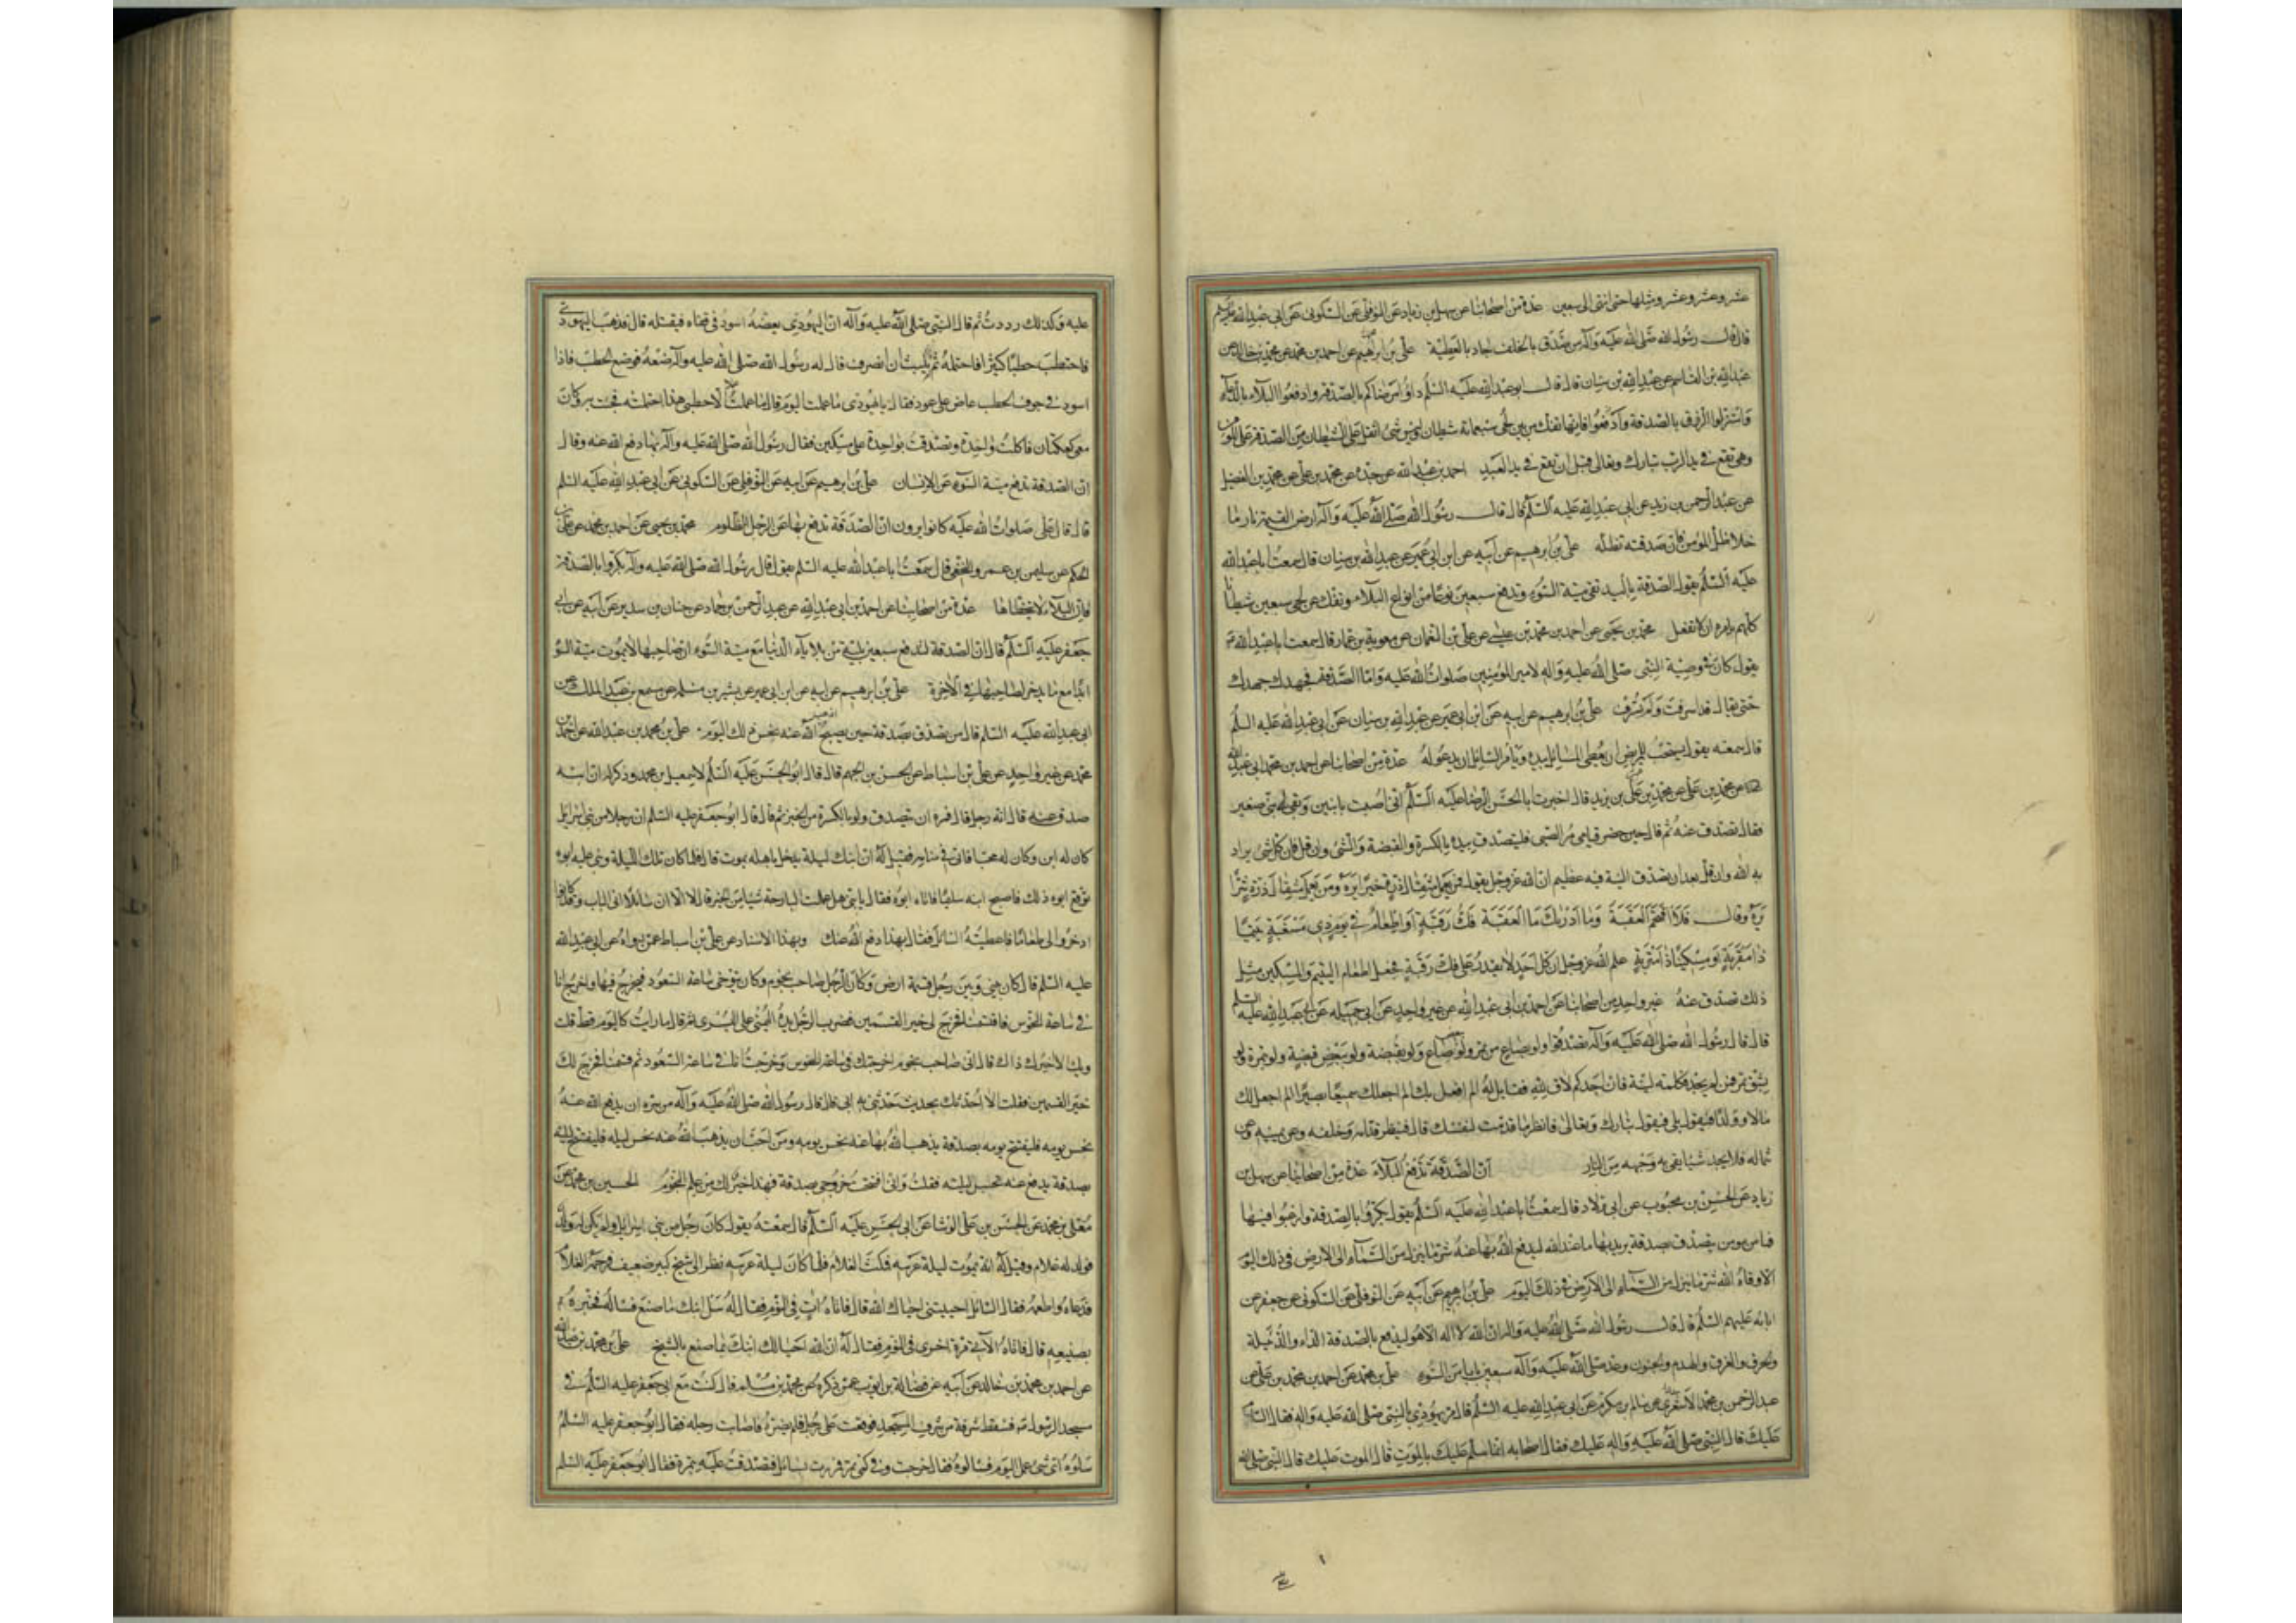 عشر وعشر وعشر ومثلها حتى انتهى الى سبعين عدة من اصحابنا عن سهل بن زياد عن النوفلى عن السكونى عن ابى عبد الله عليه السلم
قال قال رسول الله صلى الله عليه وآله من صدق بالخلف جاد بالعطية على بن ابرهيم عن احمد بن محمد عن محمد بن خالد عن
عبد الله بن القاسم عن عبد الله بن سنان قال قال ابو عبد الله عليه السلم داووا مرضاكم بالصدقة وادفعوا البلاء بالدعاء
واستنزلوا الرزق بالصدقة فانها تفك من بين لحى سبعمائة شيطان وليس شئ اثقل على الشيطان من الصدقة على المؤمن
وهى تقع فى يد الرب تبارك وتعالى قبل ان تقع فى يد العبد احمد بن عبد الله عن جده عن محمد بن على عن محمد بن الفضيل
عن عبد الرحمن بن زيد عن ابى عبد الله عليه السلم قال قال رسول الله صلى الله عليه وآله ارض القيمة نار ما
خلا ظل المؤمن فان صدقته تظله على بن ابرهيم عن ابيه عن ابن ابى عمير عن عبد الله بن سنان قال سمعت ابا عبد الله
عليه السلم يقول الصدقة باليد تقى ميتة السوء وتدفع سبعين نوعا من انواع البلاء وتفك عن لحى سبعين شيطانا
كلهم يامره ان لا تفعل محمد بن يحيى عن احمد بن محمد بن عيسى عن على بن النعمان عن معوية بن عمار قال سمعت ابا عبد الله ع
يقول كان فى وصية النبى صلى الله عليه وآله لامير المؤمنين صلوات الله عليه واما الصدقة فجهدك جهدك
حتى يقال قد اسرفت ولم تسرف على بن ابرهيم عن ابيه عن ابن ابى عمير عن عبد الله بن سنان عن ابى عبد الله عليه السلم
قال سمعته يقول يستحب للمريض ان يعطى السائل بيده ويأمر السائل ان يدعو له عدة من اصحابنا عن احمد بن محمد ابى عبد الله
عن محمد بن على عن محمد بن عمر بن يزيد قال اخبرت ابا الحسن الرضا عليه السلم انى اصبت بابنين وبقى لى بنى صغير
فقال تصدق عنه ثم قال حين حضر قيامى مر الصبى فليتصدق بيده بالكسرة والقبضة والشئ وان قل فان كل شئ يراد
به الله وان قل بعد ان تصدق النية فيه عظيم ان الله عز وجل يقول فمن يعمل مثقال ذرة خيرا يره ومن يعمل مثقال ذرة شرا
يره وقال فلا اقتحم العقبة وما ادريك ما العقبة فك رقبة او اطعام فى يوم ذى مسغبة يتيما
ذا مقربة او مسكينا ذا متربة علم الله عز وجل ان كل احد لا يقدر على فك رقبة فجعل اطعام اليتيم والمسكين مثل
ذلك تصدق عنه غير واحد من اصحابنا عن احمد بن ابى عبد الله عن غير واحد عن ابى جميلة عن ابى عبد الله عليه السلم
قال قال رسول الله صلى الله عليه وآله تصدقوا ولو بصاع من تمر ولو ببعض صاع ولو بقبضة ولو ببعض قبضة ولو بتمرة ولو
بشق تمرة فمن لم يجد فبكلمة لينة فان احدكم لاق لله فقايل له الم افعل بك الم اجعلك سميعا بصيرا الم اجعل لك
مالا وولدا فيقول بلى فيقول الله تبارك وتعالى فانظر ما قدمت لنفسك قال فينظر قدامه وخلفه وعن يمينه وعن
شماله فلا يجد شيئا يقى به وجهه من النار ان الصدقة تدفع البلاء عدة من اصحابنا عن سهل بن
زياد عن الحسن بن محبوب عن ابى ولاد قال سمعت ابا عبد الله عليه السلم يقول بكروا بالصدقة وارغبوا فيها
فما من مؤمن يتصدق بصدقة يريد بها ما عند الله ليدفع الله بها عنه شر ما ينزل من السماء الى الارض فى ذلك اليوم
الا وقاه الله شر ما ينزل من السماء الى الارض فى ذلك اليوم على بن ابرهيم عن ابيه عن النوفلى عن السكونى عن جعفر عن
ابائه عليهم السلم قال قال رسول الله صلى الله عليه واله ان الله لا اله الا هو ليدفع بالصدقة الداء والدبيلة
والحرق والغرق والهدم والجنون وعد صلى الله عليه وآله سبعين بابا من السوء على بن محمد عن احمد بن محمد بن على عن
عبد الرحمن بن محمد الاسدى عن سالم بن مكرم عن ابى عبد الله عليه السلم قال مر يهودى بالنبى صلى الله عليه واله فقال السام
عليك قال النبى صلى الله عليه واله عليك فقال اصحابه انما سلم عليك بالموت قال الموت عليك قال النبى صلى الله
عليه وكذلك رددت ثم قال النبى صلى الله عليه وآله ان اليهودى يعضه اسود فى قفاه فيقتله قال فذهب اليهودى
فاحتطب حطبا كثيرا فاحتمله ثم لم يلبث ان انصرف فقال له رسول الله صلى الله عليه وآله ضعه فوضع الحطب فاذا
اسود فى جوف الحطب عاض على عود فقال يا يهودى ما عملت اليوم قال ما عملت عملا الا حطبى هذا احتملته فجئت به وكان
معى كعكتان فاكلت واحدة وتصدقت بواحدة على مسكين فقال رسول الله صلى الله عليه وآله بها دفع الله عنه وقال
ان الصدقة تدفع ميتة السوء عن الانسان على بن ابرهيم عن ابيه عن النوفلى عن السكونى عن ابى عبد الله عليه السلم
قال قال على صلوات الله عليه كانوا يرون ان الصدقة تدفع بها عن الرجل المظلوم محمد بن يحيى عن احمد بن محمد عن على بن
الحكم عن سليمن بن عمرو النخعى قال سمعت ابا عبد الله عليه السلم يقول قال رسول الله صلى الله عليه وآله بكروا بالصدقة
فان البلاء لا يتخطاها عدة من اصحابنا عن احمد بن ابى عبد الله عن عبد الرحمن بن حماد عن حنان بن سدير عن ابيه عن ابى
جعفر عليه السلم قال ان الصدقة لتدفع سبعين بلية من بلايا الدنيا مع ميتة السوء ان صاحبها لا يموت ميتة السوء
ابدا مع ما يدخر لصاحبها فى الآخرة على بن ابرهيم عن ابيه عن ابن ابى عمير عن بشر بن مسلمة عن مسمع بن عبد الملك عن
ابى عبد الله عليه السلم قال من تصدق بصدقة حين يصبح اذهب الله عنه نحس ذلك اليوم على بن محمد بن عبد الله عن احمد بن
محمد عن غير واحد عن على بن اسباط عن الحسن بن الجهم قال قال ابو الحسن عليه السلم لاسمعيل بن محمد وذكر له ان ابنه
صدق عنه قال انه رجل قال فمره ان يتصدق ولو بالكسرة من الخبز ثم قال قال ابو جعفر عليه السلم ان رجلا من بنى اسرائيل
كان له ابن وكان له محبا فاتى فى منامه فقيل له ان ابنك ليلة يدخل باهله يموت قال فلما كان تلك الليلة وبنى عليه ابوه
توقع ابوه ذلك فاصبح ابنه سليما فاتاه ابوه فقال يا بنى هل عملت البارحة شيئا من الخير قال لا الا ان سائلا اتى الباب وقد كانوا
ادخروا لى طعاما فاعطيته السائل فقال بهذا دفع الله عنك وبهذا الاسناد عن على بن اسباط عمن رواه عن ابى عبد الله
عليه السلم قال كان بينى وبين رجل قسمة ارض وكان الرجل صاحب نجوم وكان يتوخى ساعة السعود فيخرج فيها واخرج انا
فى ساعة النحوس فاقتسمنا فخرج لى خير القسمين فضرب الرجل يده اليمنى على اليسرى ثم قال ما رايت كاليوم قط قلت
ويك الا اخبرك ذاك قال انى صاحب نجوم اخرجتك فى ساعة النحوس وخرجت انا فى ساعة السعود ثم قسمنا فخرج لك
خير القسمين فقلت الا احدثك بحديث حدثنى به ابى قال قال رسول الله صلى الله عليه وآله من سره ان يدفع الله عنه
نحس يومه فليفتتح يومه بصدقة يذهب الله بها عنه نحس يومه ومن احب ان يذهب الله عنه نحس ليله فليفتتح ليلته
بصدقة يدفع عنه نحس ليلته فقلت وانى افتتحت خروجى بصدقة فهذا خير لك من علم النجوم الحسين بن محمد عن
معلى بن محمد عن الحسن بن على الوشا عن ابى الحسن عليه السلم قال سمعته يقول كان رجل من بنى اسرائيل ولم يكن له ولد
فولد له غلام وقيل له انه يموت ليلة عرسه فمكث الغلام فلما كان ليلة عرسه نظر الى شيخ كبير ضعيف فرحمه الغلام
فدعاه واطعمه فقال السائل احييتنى احياك الله قال فاتاه ات فى النوم فقال له سل ابنك ما صنع فساله فخبره
بصنيعه قال فاتاه الآتى مرة اخرى فى النوم فقال له ان الله احيا لك ابنك بما صنع بالشيخ على بن محمد بن عبد الله
عن احمد بن محمد بن خالد عن ابيه عن فضالة بن ايوب عمن ذكره عن محمد بن مسلم قال كنت مع ابى جعفر عليه السلم فى
مسجد الرسول ص فسقط شرفة من شرف المسجد فوقعت على رجل فلم يضره فاصابت رجله فقال ابو جعفر عليه السلم
سلوه اى شئ عمل اليوم فسالوه فقال خرجت وفى كمى تمر فمررت بسائل فتصدقت عليه بتمرة فقال ابو جعفر عليه السلم